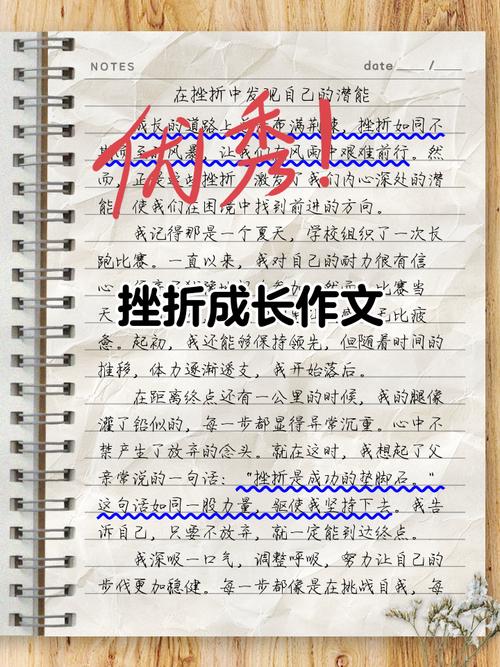 NOTES
date ___ /___
在挫折中发现自己的潜能
优秀!
成长的道路上 布满荆棘,挫折如同不
风暴,让我们在风雨中艰难前行。然
而,正是这些挫折,激发了我们内心深处的潜
能,使我们在困境中找到前进的方向。
我记得那是一个夏天,学校组织了一次长
跑比赛。一直以来,我对自己的耐力很有信
心 比赛
挫折成长作文
天 比疲
惫。起初,我还能够保持领先,但随着时间的
推移,体力逐渐透支,我开始落后。
在距离终点还有一公里的时候,我的腿像
灌了铅似的,每一步都显得异常沉重。心中不
禁产生了放弃的念头。就在这时,我想起了父
亲常说的一句话:“挫折是成功的垫脚石。”
这句话如同一股力量,驱使我坚持下去。我告
诉自己,只要不放弃,就一定能到达终点。
我深吸一口气,调整呼吸,努力让自己的
步伐更加稳健。每一步都像是在挑战自我,每